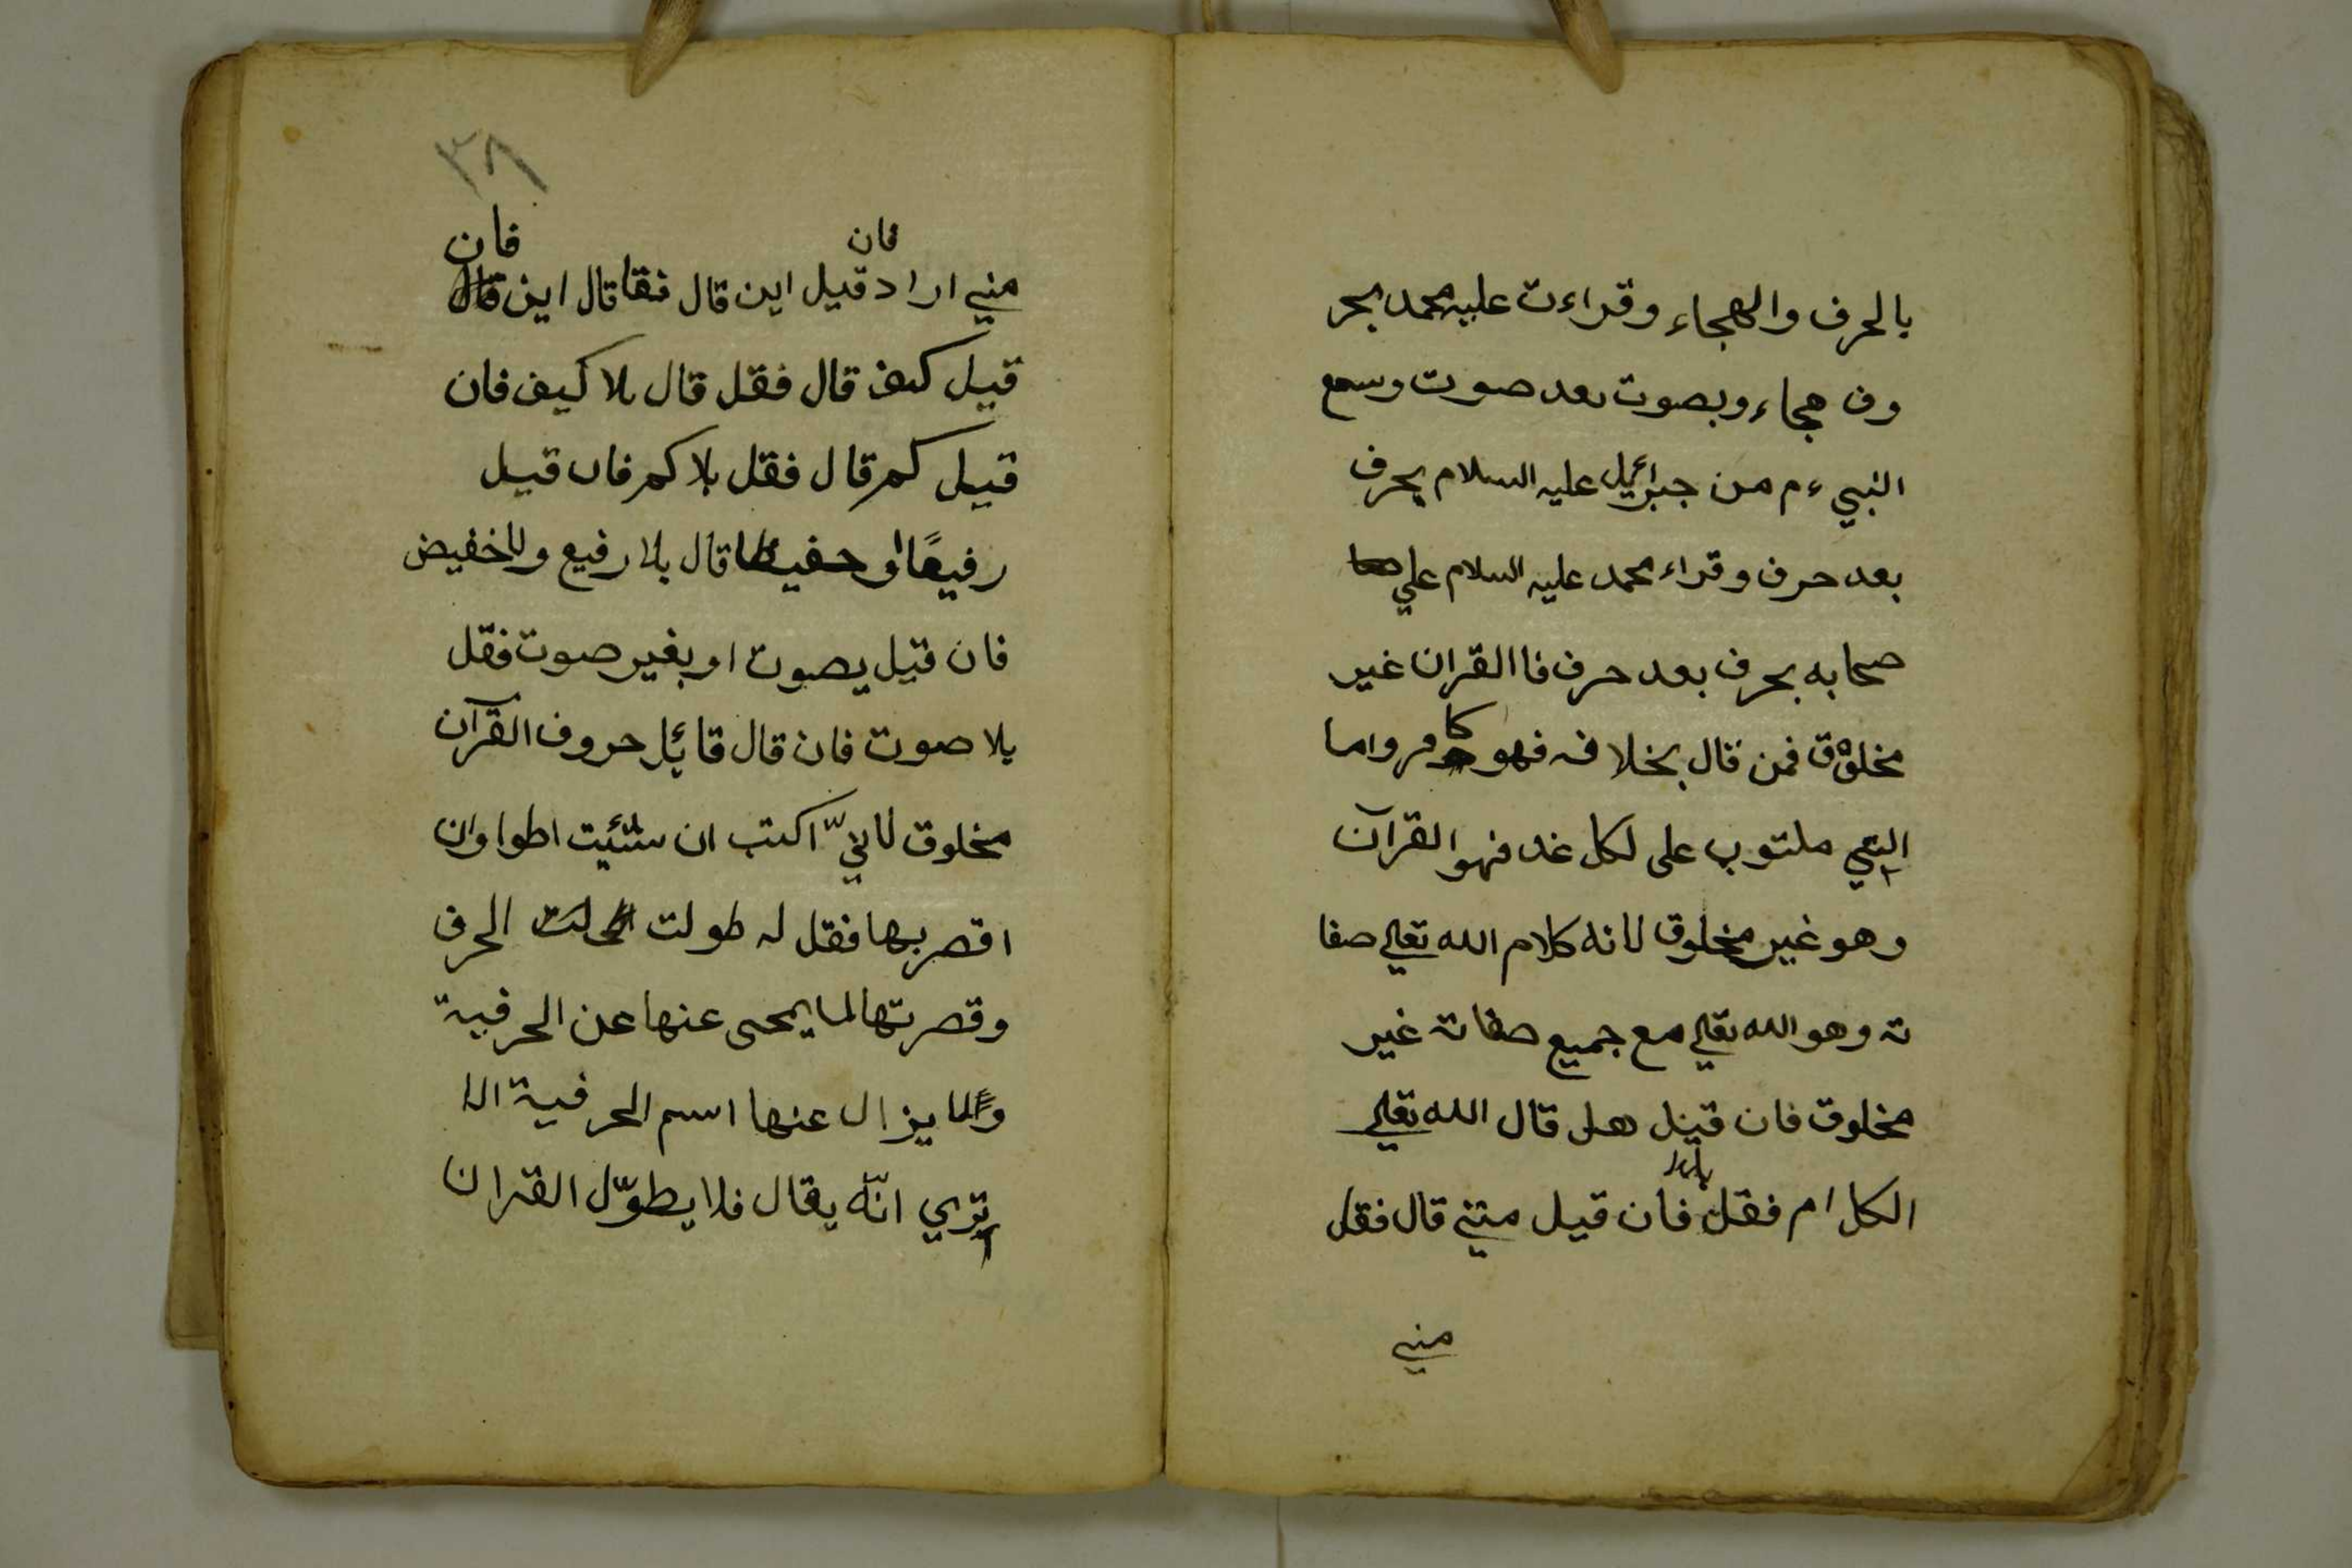 بالحرف والهجاء وقراءت عليه محمد بحر
وف هجاء وبصوت بعد صوت وسمع
النبي ءم من جبرائيل عليه السلام بحرف
بعد حرف وقراء محمد عليه السلام علي
صحابه بحرف بعد حرف فاالقران غير
مخلوق فمن قال بخلافه فهو كافر واما
التي ملتوب على لكل غد فهو القرآن
وهو غير مخلوق لانه كلام الله تعالي صفا
ته وهو الله تعالي مع جميع صفاته غير
مخلوق فان قيل هل قال الله تعالي
الكلام فقل فان قيل متي قال فقل
متي
٣٨
متي اراد فان قيل اين قال فقا قال اين فان
قيل كيف قال فقل قال بلا كيف فان
قيل كم قال فقل بلا كم فان قيل
رفيعًا او خفيضا قال بلا رفيع ولا خفيض
فان قيل بصوت او بغير صوت فقل
بلا صوت فان قال قائل حروف القرآن
مخلوق لانيّ اكتب ان شئيت اطوا وان
اقصر بها فقل له طولت الحرف
وقصرتها لما يمحى عنها عن الحرفية
ولما يزال عنها اسم الحرفية الا
تري انّه يقال فلا يطوّل القران